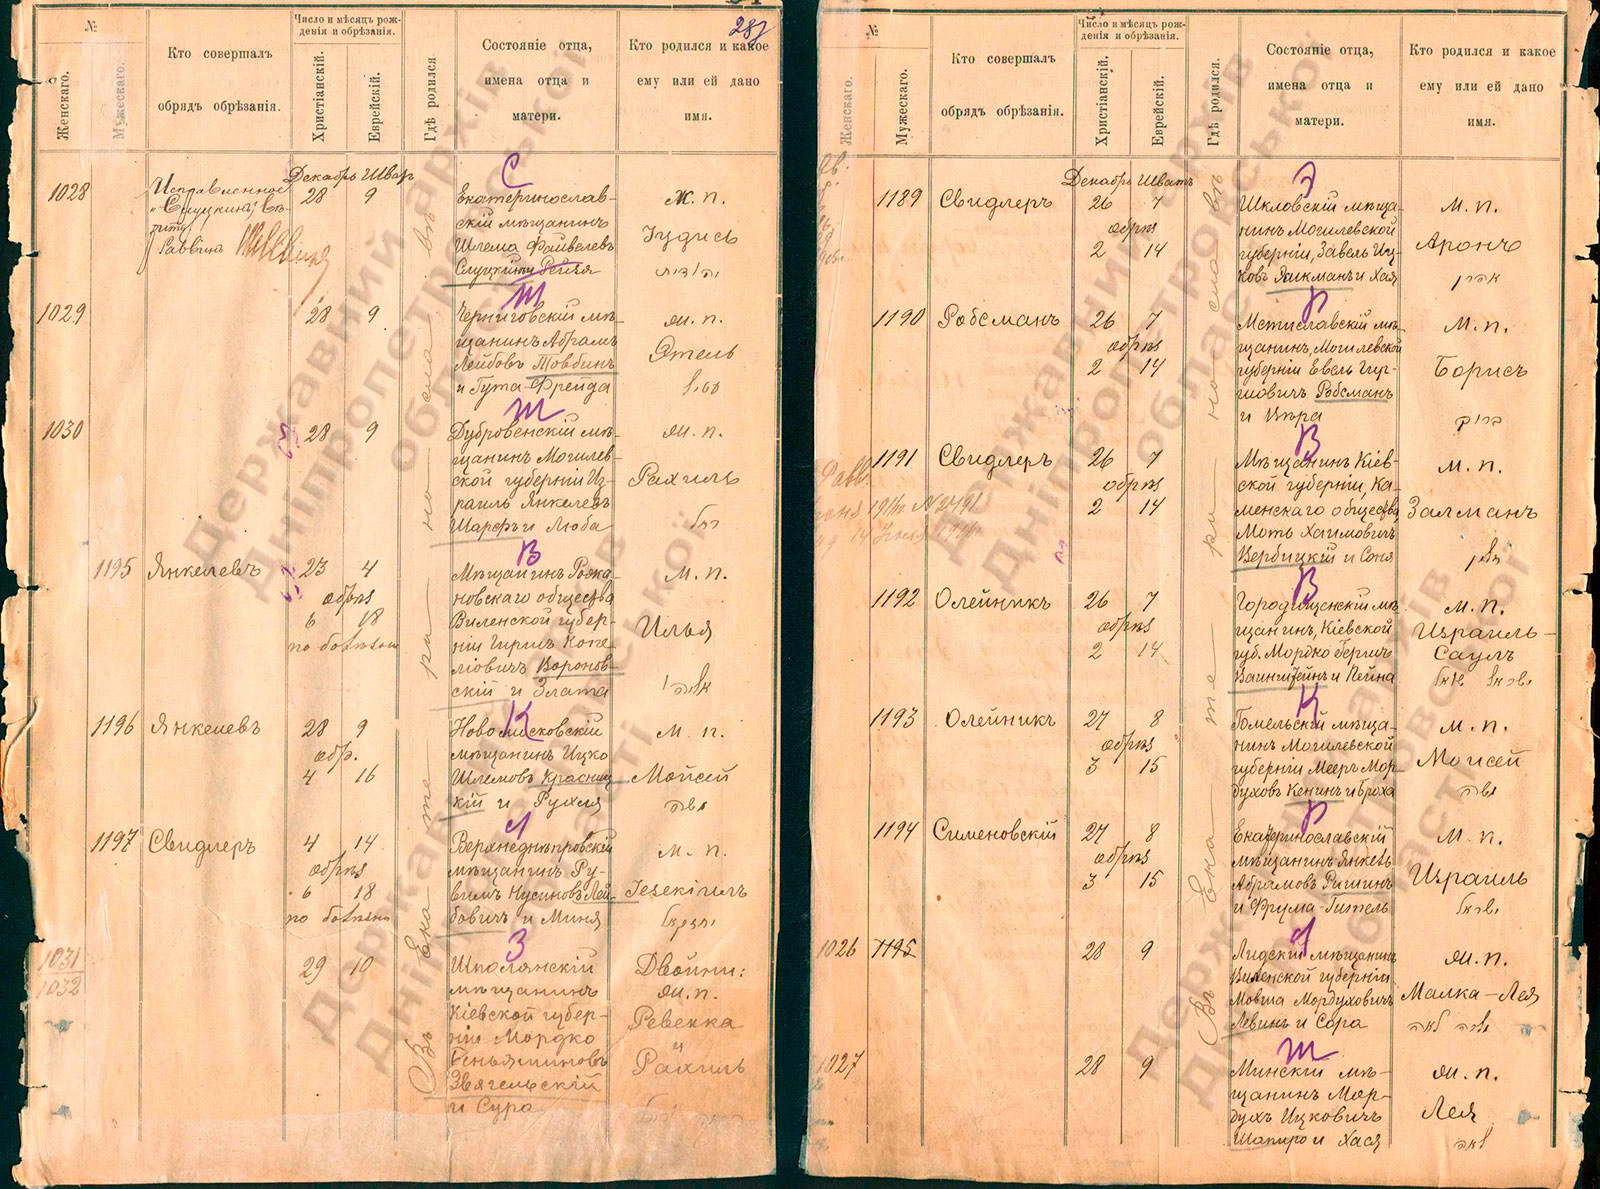 287
№
Женскаго.
Мужескаго.
Кто совершалъ
обрядъ обрѣзанія.
Число и мѣсяцъ рож-
денія и обрѣзанія.
Христіанскій.
Еврейскій.
Гдѣ родился
Состояніе отца,
имена отца и
матери.
Кто родился и какое
ему или ей дано
имя.
Декабрь
1028
Исправленное
Раввинъ
28
9
С
Екатеринослав-
скій мѣщанинъ
Шлема Файвелевъ
Слуцкій
ж. п.
Іудись
יהודית
1029
28
9
Т
Черниговскій мѣ-
щанинъ Абрамъ
Лейбовъ Товбинъ
и Гута-Фрейда
ж. п.
Этель
1030
28
9
Ш
Дубровенскій мѣ-
щанинъ Могилев-
ской губерніи Из-
раиль Янкелевъ
Шарфъ и Люба
ж. п.
Рахиль
רחל
1195
Янкелевъ
23
4
обрѣз
6
18
по болѣзни
В
Мѣщанинъ Рожа-
новскаго общества
Виленской губер-
ніи Гиршъ Копе-
ліовичъ Воронов-
скій и Злата
м. п.
Илья
אליהו
1196
Янкелевъ
28
9
обр.
4
16
К
Новомосковскій
мѣщанинъ Ицко
Шлемовъ Красниц-
кій и Рухля
м. п.
Мойсей
משה
1197
Свидлеръ
4
14
обрѣз
6
18
по болѣзни
Л
Верхнеднѣпровскій
мѣщанинъ Ру-
вимъ Нусиновъ Лей-
бовичъ и Миня
м. п.
Іезекіиль
יחזקאל
1031
1032
29
10
З
Шполянскій
мѣщанинъ
Кіевской губер-
ніи Мордко
Беньяминовъ
Звягельскій
и Сура
Двойни:
ж. п.
Ревекка
и
Рахиль
Въ Екатеринославѣ
№
Женскаго.
Мужескаго.
Кто совершалъ
обрядъ обрѣзанія.
Число и мѣсяцъ рож-
денія и обрѣзанія.
Христіанскій.
Еврейскій.
Гдѣ родился.
Состояніе отца,
имена отца и
матери.
Кто родился и какое
ему или ей дано
имя.
Декабрь Шватъ
1189
Свидлеръ
26
7
обрѣз
2
14
Э
Шкловскій мѣща-
нинъ Могилевской
губерніи, Завель Иц-
ковъ Эйкманъ и Хая
м. п.
Аронъ
אהרן
1190
Робсманъ
26
7
обрѣз
2
14
Р
Мстиславскій мѣ-
щанинъ, Могилевской
губерніи Евель Гир-
шовичъ Робсманъ
и Цира
м. п.
Борисъ
ברוך
1191
Свидлеръ
26
7
обрѣз
2
14
В
Мѣщанинъ Кіев-
ской губерніи, Ка-
менскаго общества,
Моть Хаимовичъ
Вербицкій и Соня
м. п.
Залманъ
זלמן
1192
Олейникъ
26
7
обрѣз
2
14
В
Городищенскій мѣ-
щанинъ, Кіевской
губ. Мордко Беричъ
Ваинштейнъ и Пейна
м. п.
Израиль-
Сауль
ישראל שאול
1193
Олейникъ
27
8
обрѣз
3
15
К
Гомельскій мѣща-
нинъ Могилевской
губерніи Мееръ Мор-
духовъ Кенинъ и Броха
м. п.
Моисей
משה
1194
Сименовскій
27
8
обрѣз
3
15
Р
Екатеринославскій
мѣщанинъ Янкель
Абрамовъ Ришинъ
и Фрума-Гитель
м. п.
Израиль
ישראל
1026
1195
28
9
Л
Лидскій мѣщанинъ
Виленской губерніи
Мовша Мордуховичъ
Левинъ и Сора
ж. п.
Малка-Лея
מלכה לאה
1027
28
9
Ш
Минскій мѣ-
щанинъ Мор-
духъ Ицковичъ
Шапиро и Хася
ж. п.
Лея
לאה
Въ Екатеринославѣ
Державний архів
Дніпропетровської
області